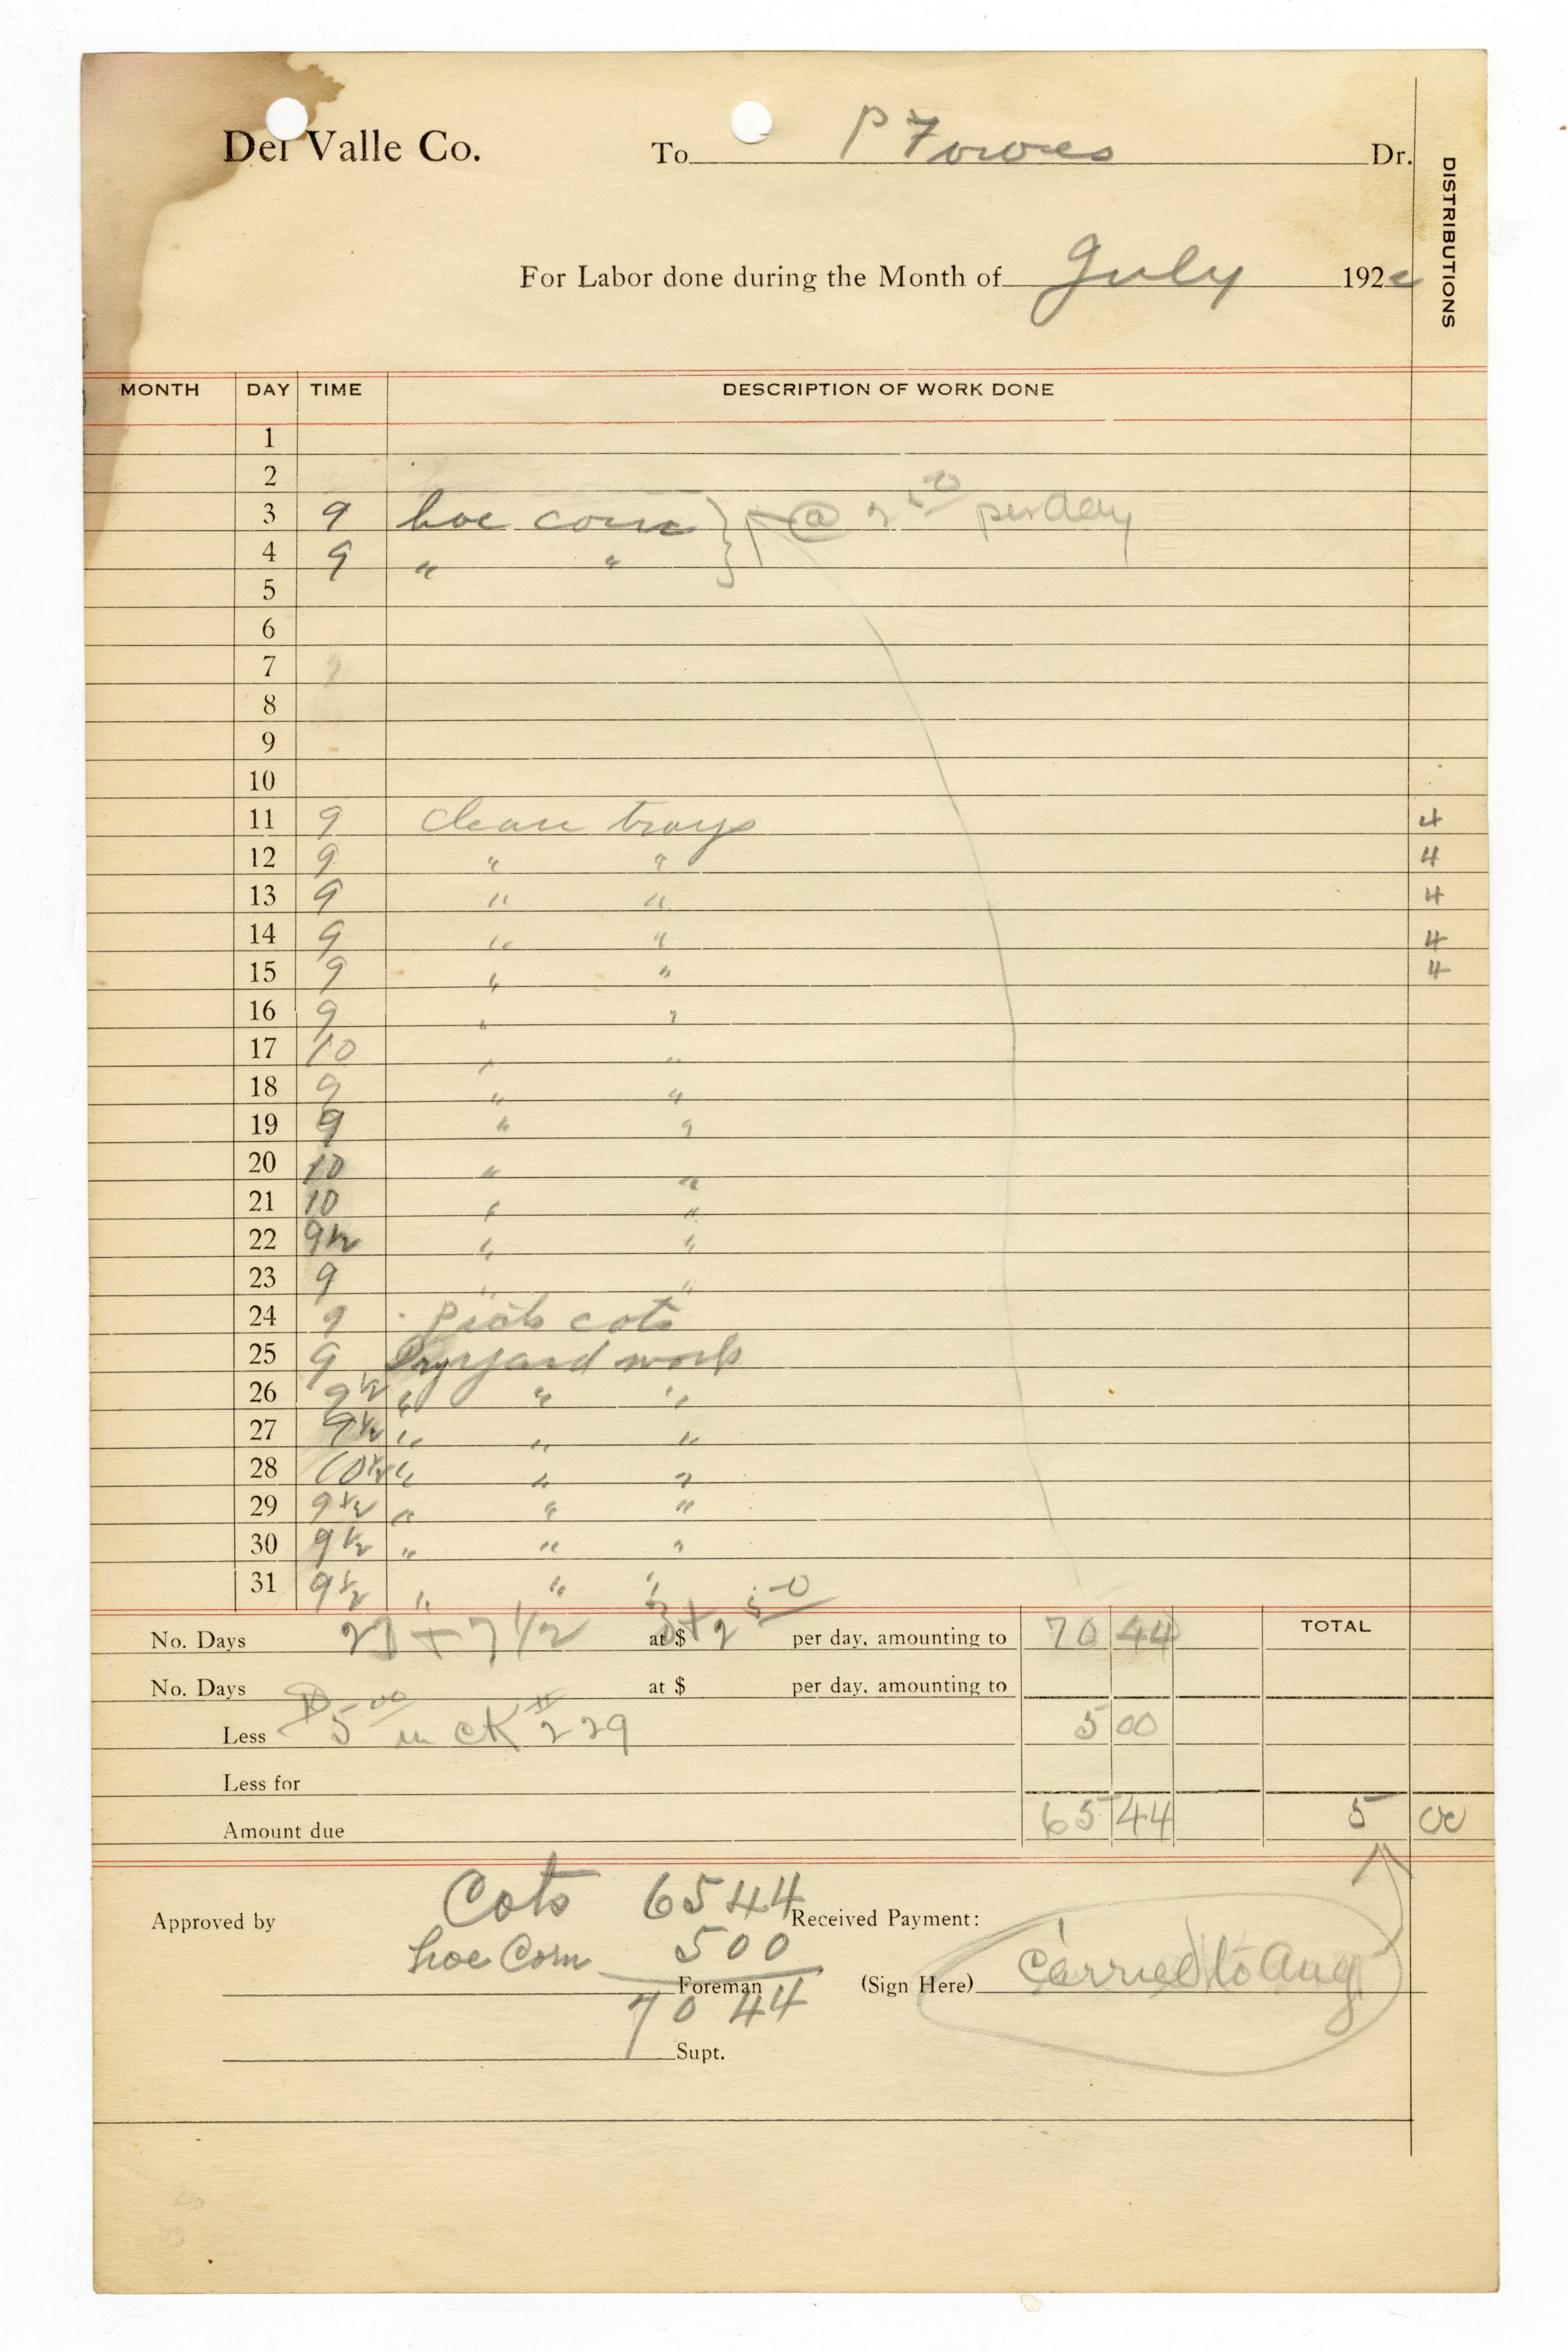 Del Valle Co. To P Dr.
For Labor done during the Month of July 192
DISTRIBUTIONS
MONTH DAY TIME DESCRIPTION OF WORK DONE
1
2
3 9 hoe corn } @ 2 50 per day
4 9 " "
5
6
7
8
9
10
11 9 clean trays 4
12 9 " " 4
13 9 " " 4
14 9 " " 4
15 9 " " 4
16 9 " "
17 10 " "
18 9 " "
19 9 " "
20 10 " "
21 10 " "
22 9½ " "
23 9 " "
24 9 pick cots
25 9 Dryyard work
26 9½ " " "
27 9½ " " "
28 10½ " " "
29 9½ " " "
30 9½ " " "
31 9½ " " "
No. Days + 7 1/2 at $ 2 50 per day, amounting to 70 44 TOTAL
No. Days at $ per day, amounting to
Less 5 00 in CK # 229 5 00
Less for
Amount due 65 44 5 00
Cots 65 44
Approved by Received Payment:
hoe Corn 5 00
Foreman (Sign Here) carried to Aug
70 44
Supt.